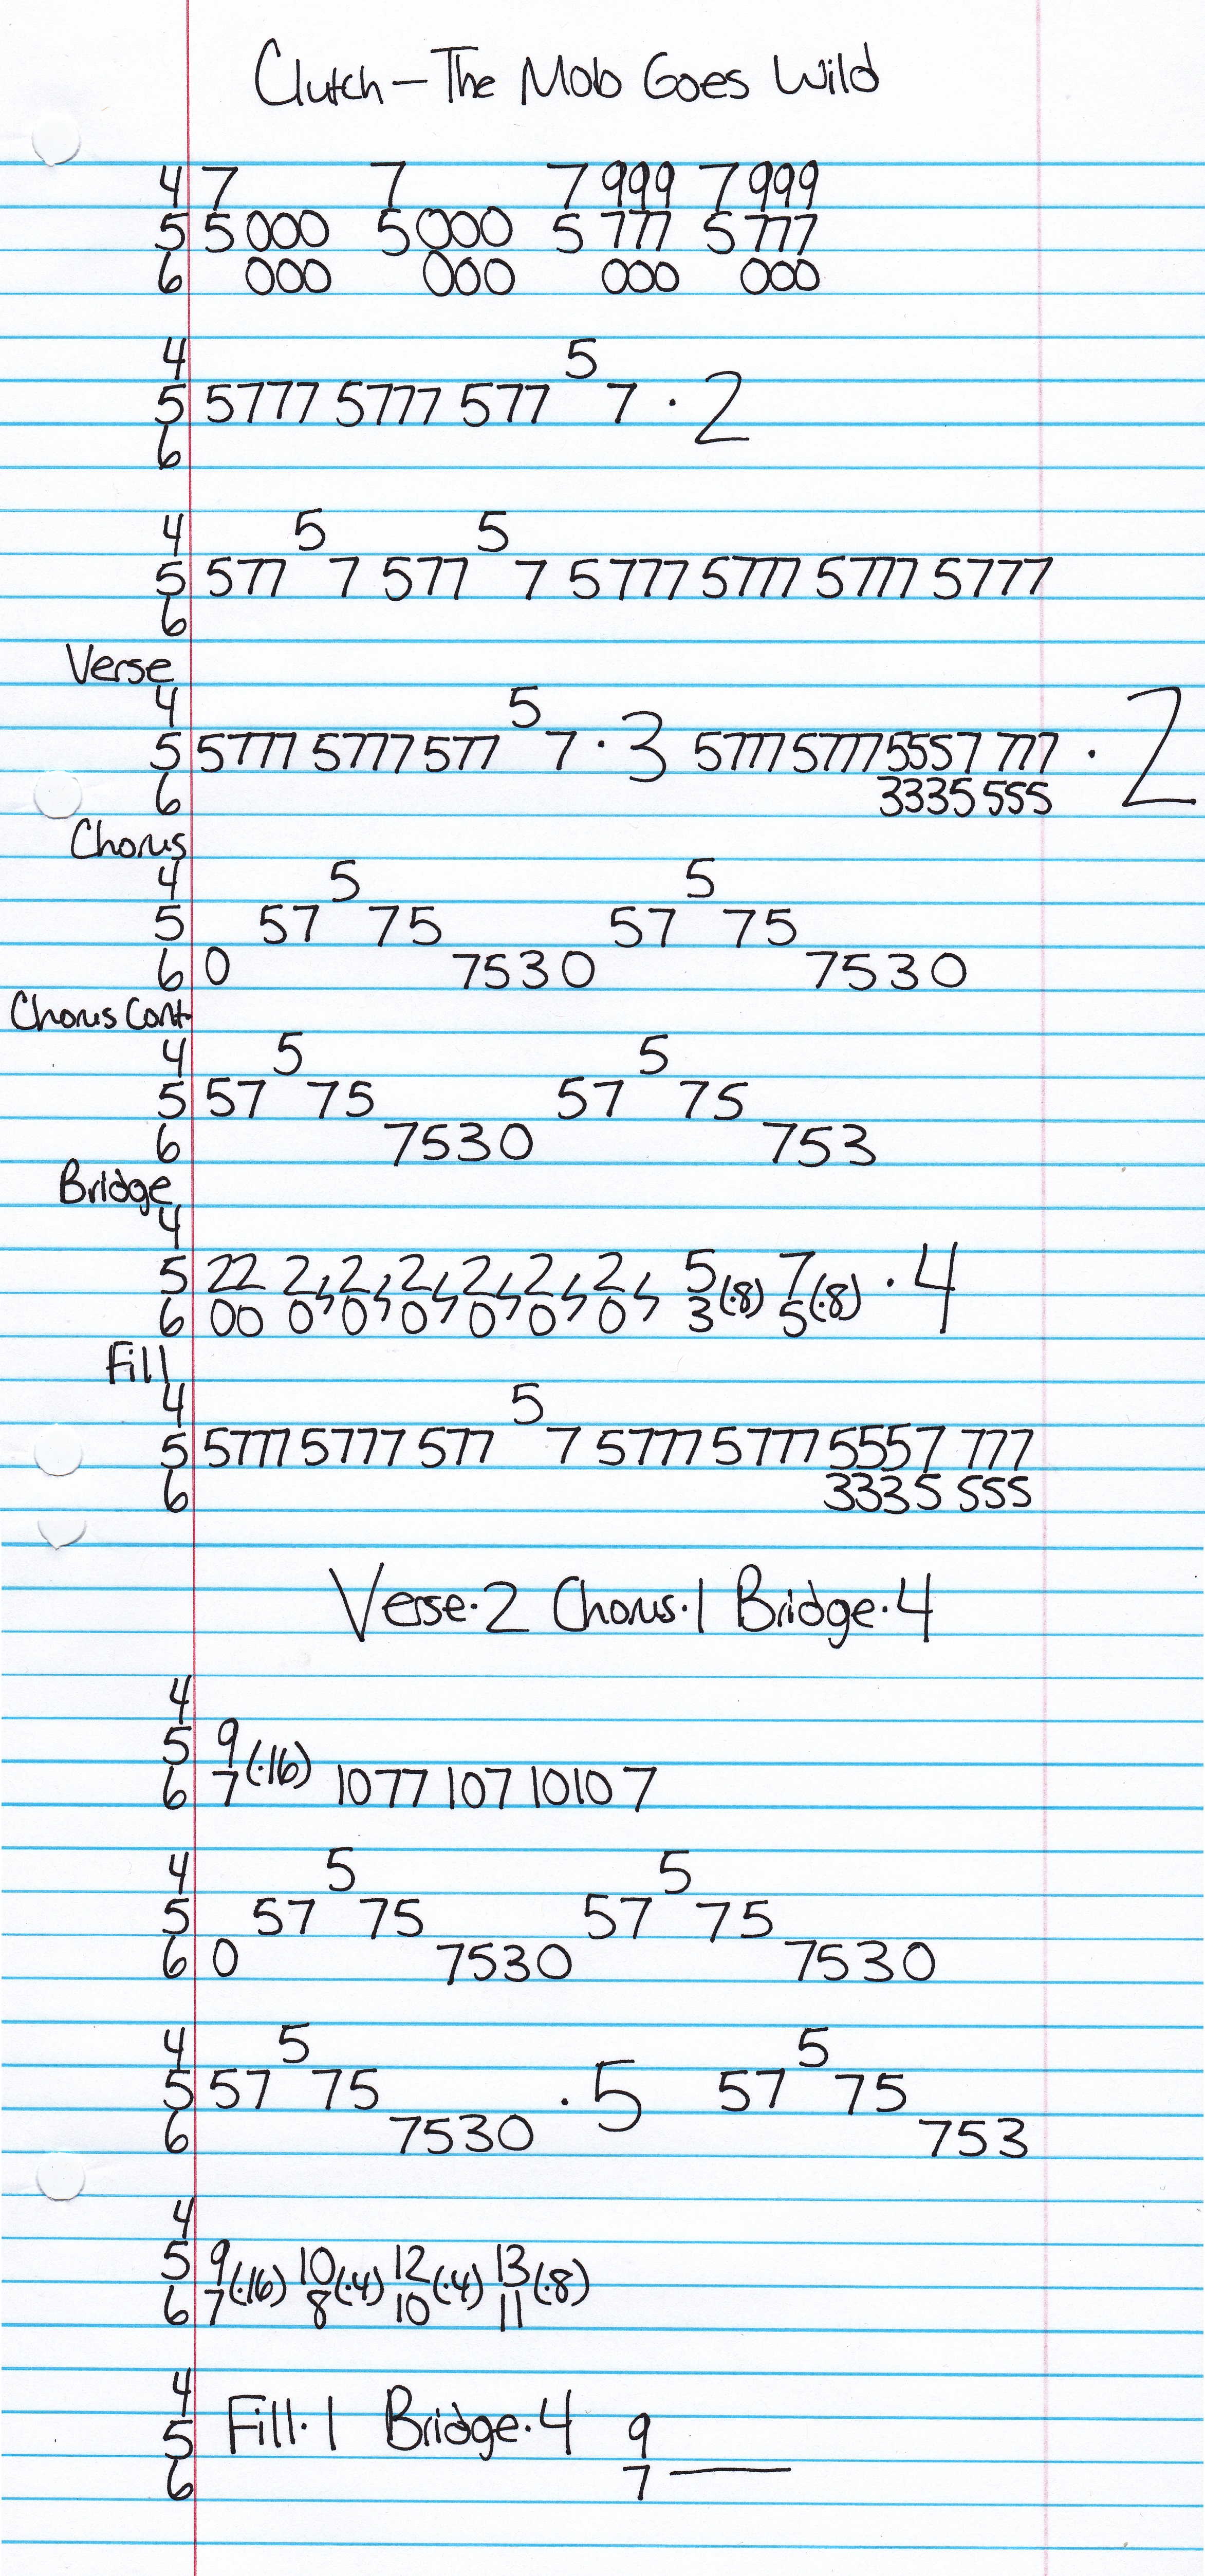 Clutch - The Mob Goes Wild
4 7 7 7 999 7 999
5 5 000 5 000 5 777 5 777
6 000 000 000 000
4 5
5 5777 5777 577 7 · 2
6
4 5 5
5 577 7 577 7 5777 5777 5777 5777
6
Verse
4 5
5 5777 5777 577 7 · 3 5777 5777 5557 777 · 2
6 3335 555
Chorus
4 5 5
5 57 75 57 75
6 0 7530 7530
Chorus Cont.
4 5 5
5 57 75 57 75
6 7530 753
Bridge
4
5 22 2 2 2 2 2 2 5 (·8) 7 (·8) · 4
6 00 0 0 0 0 0 0 3 5
Fill
4 5
5 5777 5777 577 7 5777 5777 5557 777
6 3335 555
Verse·2 Chorus·1 Bridge·4
4
5 9 (·16)
6 7 10 77 107 1010 7
4 5 5
5 57 75 57 75
6 0 7530 7530
4 5 5
5 57 75 · 5 57 75
6 7530 753
4
5 9 (·16) 10 (·4) 12 (·4) 13 (·8)
6 7 8 10 11
4
5 Fill·1 Bridge·4 9
6 7